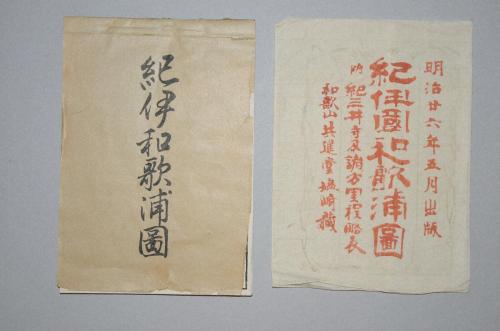 紀伊和歌浦圖
明治廿六年五月出版
紀伊國和歌浦圖
附 紀三井寺及諸方里程略表
和歌山共進堂𡌛﨑藏